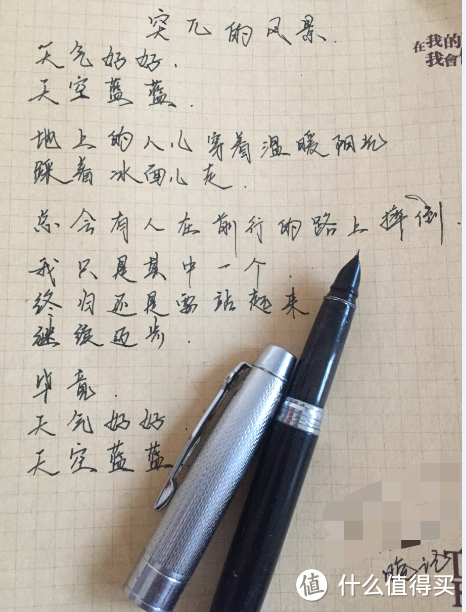 突兀的风景.
天气好好.
天空蓝蓝.
地上的人儿穿着温暖阳光
踩着冰面儿走.
总会有人在前行的路上摔倒.
我只是其中一个.
终归还是要站起来
继续迈步.
毕竟.
天气好好
天空蓝蓝
在我的
我會
随记
值 什么值得买